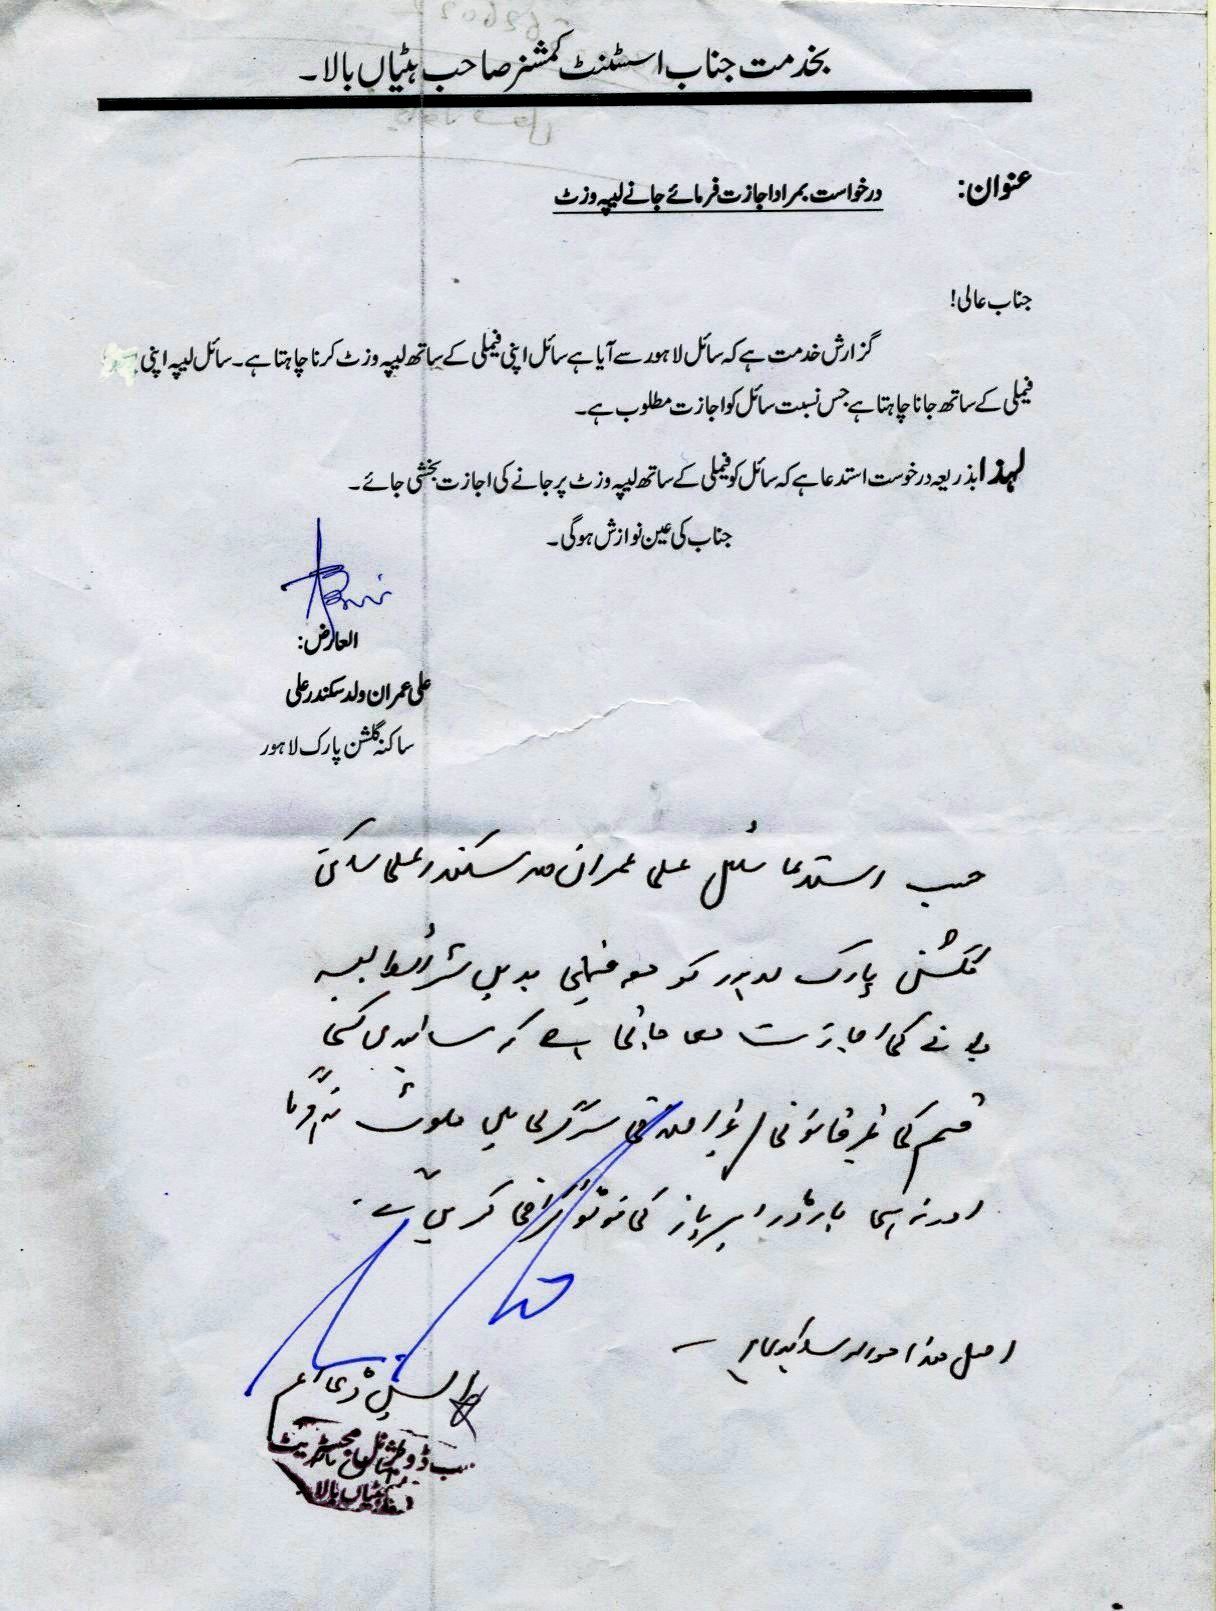 بخدمت جناب اسسٹنٹ کمشنر صاحب ہٹیاں بالا۔
عنوان: درخواست بمراد اجازت فرمائے جانے لیپہ وزٹ
جناب عالی!
گزارش خدمت ہے کہ سائل لاہور سے آیا ہے سائل اپنی فیملی کے ساتھ لیپہ وزٹ کرنا چاہتا ہے۔ سائل لیپہ اپنی
فیملی کے ساتھ جانا چاہتا ہے جس نسبت سائل کو اجازت مطلوب ہے۔
لہذا بذریعہ درخوست استدعا ہے کہ سائل کو فیملی کے ساتھ لیپہ وزٹ پر جانے کی اجازت بخشی جائے۔
جناب کی عین نوازش ہوگی۔
العارض:
علی عمران ولد سکندر علی
ساکنہ گلشن پارک لاہور
حسب استدعا سائل علی عمران ولد سکندر علی ساکن
گلشن پارک لاہور کو معہ فیملی بدیں شرائط لیپہ
جانے کی اجازت دی جاتی ہے کہ سائل کسی
قسم کی غیر قانونی / غیر اخلاقی سرگرمی میں ملوث نہ ہوگا
اور نہ ہی بارڈر ایریاز کی فوٹو گرافی کریں گے۔
اصل ہذا حوالہ
سب ڈویژنل مجسٹریٹ
ہٹیاں بالا